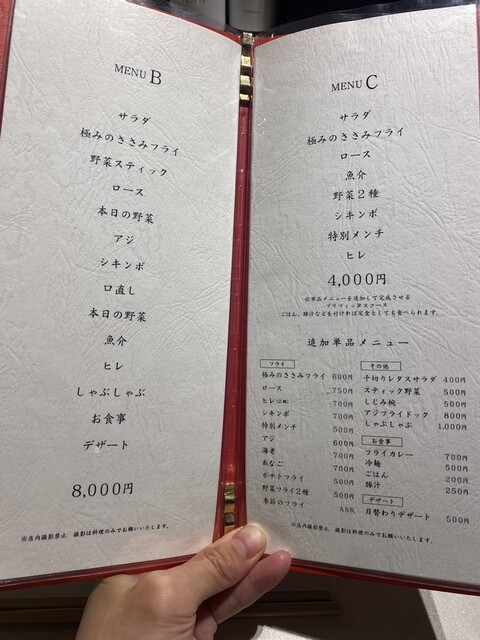 MENU B
サラダ
極みのささみフライ
野菜スティック
ロース
本日の野菜
アジ
シキンボ
口直し
本日の野菜
魚介
ヒレ
しゃぶしゃぶ
お食事
デザート
8,000円
※店内撮影禁止 撮影は料理のみでお願いいたします。
MENU C
サラダ
極みのささみフライ
ロース
魚介
野菜2種
シキンボ
特別メンチ
ヒレ
4,000円
※単品メニューを追加して完成させる
プリフィックスコース
ごはん、豚汁などを付ければ定食としても食べられます。
追加単品メニュー
フライ
極みのささみフライ 600円
ロース 750円
ヒレ 700円
シキンボ 700円
特別メンチ 500円
アジ 600円
海老 700円
あなご 700円
ポテトフライ 500円
野菜フライ2種 500円
季節のフライ ASK
その他
千切りレタスサラダ 400円
スティック野菜 500円
しじみ椀 500円
アジフライドッグ 800円
しゃぶしゃぶ 1,000円
お食事
フライカレー 700円
冷麺 500円
ごはん 200円
豚汁 250円
デザート
日替わりデザート 500円
※店内撮影禁止 撮影は料理のみでお願いいたします。